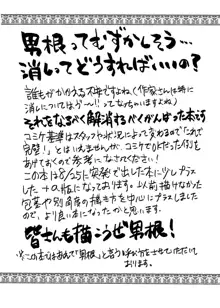 男根ってむずかしそう…
消いてどうすればいいの?
誰もがかかえる不安ですよね(作家さんは特に
消しについてはう〜〜!!ってなっちゃいますよね)
それをなるべく解消するべくがんばった本です
コミケ基準はスタッフや状況によって変わるので「これで
完璧!」とはいえませんが、コミケでOKだった例を
あげておくので参考になさってください!
この本は8/25に突発で出した本に少しプラス
した+の版になっております。以前描けなかった
包茎や別角度の描き方を中心にプラスしました
ので、より良い本になったかと思います。
皆さんも描こうぜ男根!
※この本ではあえて「男根」と言う呼び方をさせていただいて
おります。